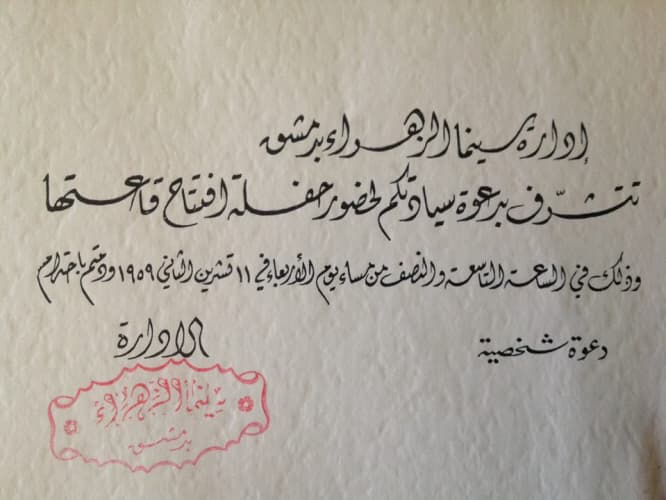 إدارة سينما الزهراء بدمشق
تتشرّف بدعوة سيادتكم لحضور حفلة افتتاح قاعتها
وذلك في الساعة التاسعة والنصف من مساء يوم الأربعاء في ١١ تشرين الثاني ١٩٥٩ ودمتم باحترام
دعوة شخصية
الادارة
سينما الزهراء
بدمشق